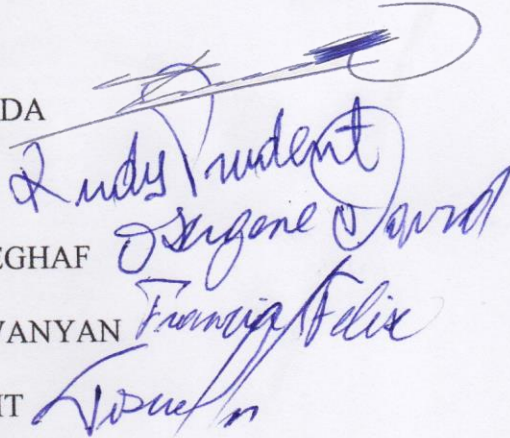 DA
Rudy Prudent
EGHAF Sergene David
WANYAN Francia Felix
IT